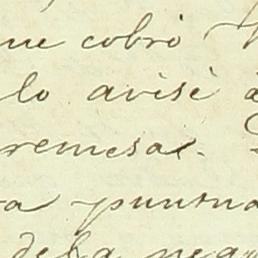 que cobró
lo avisé á
remesas.
puntua
deba nega